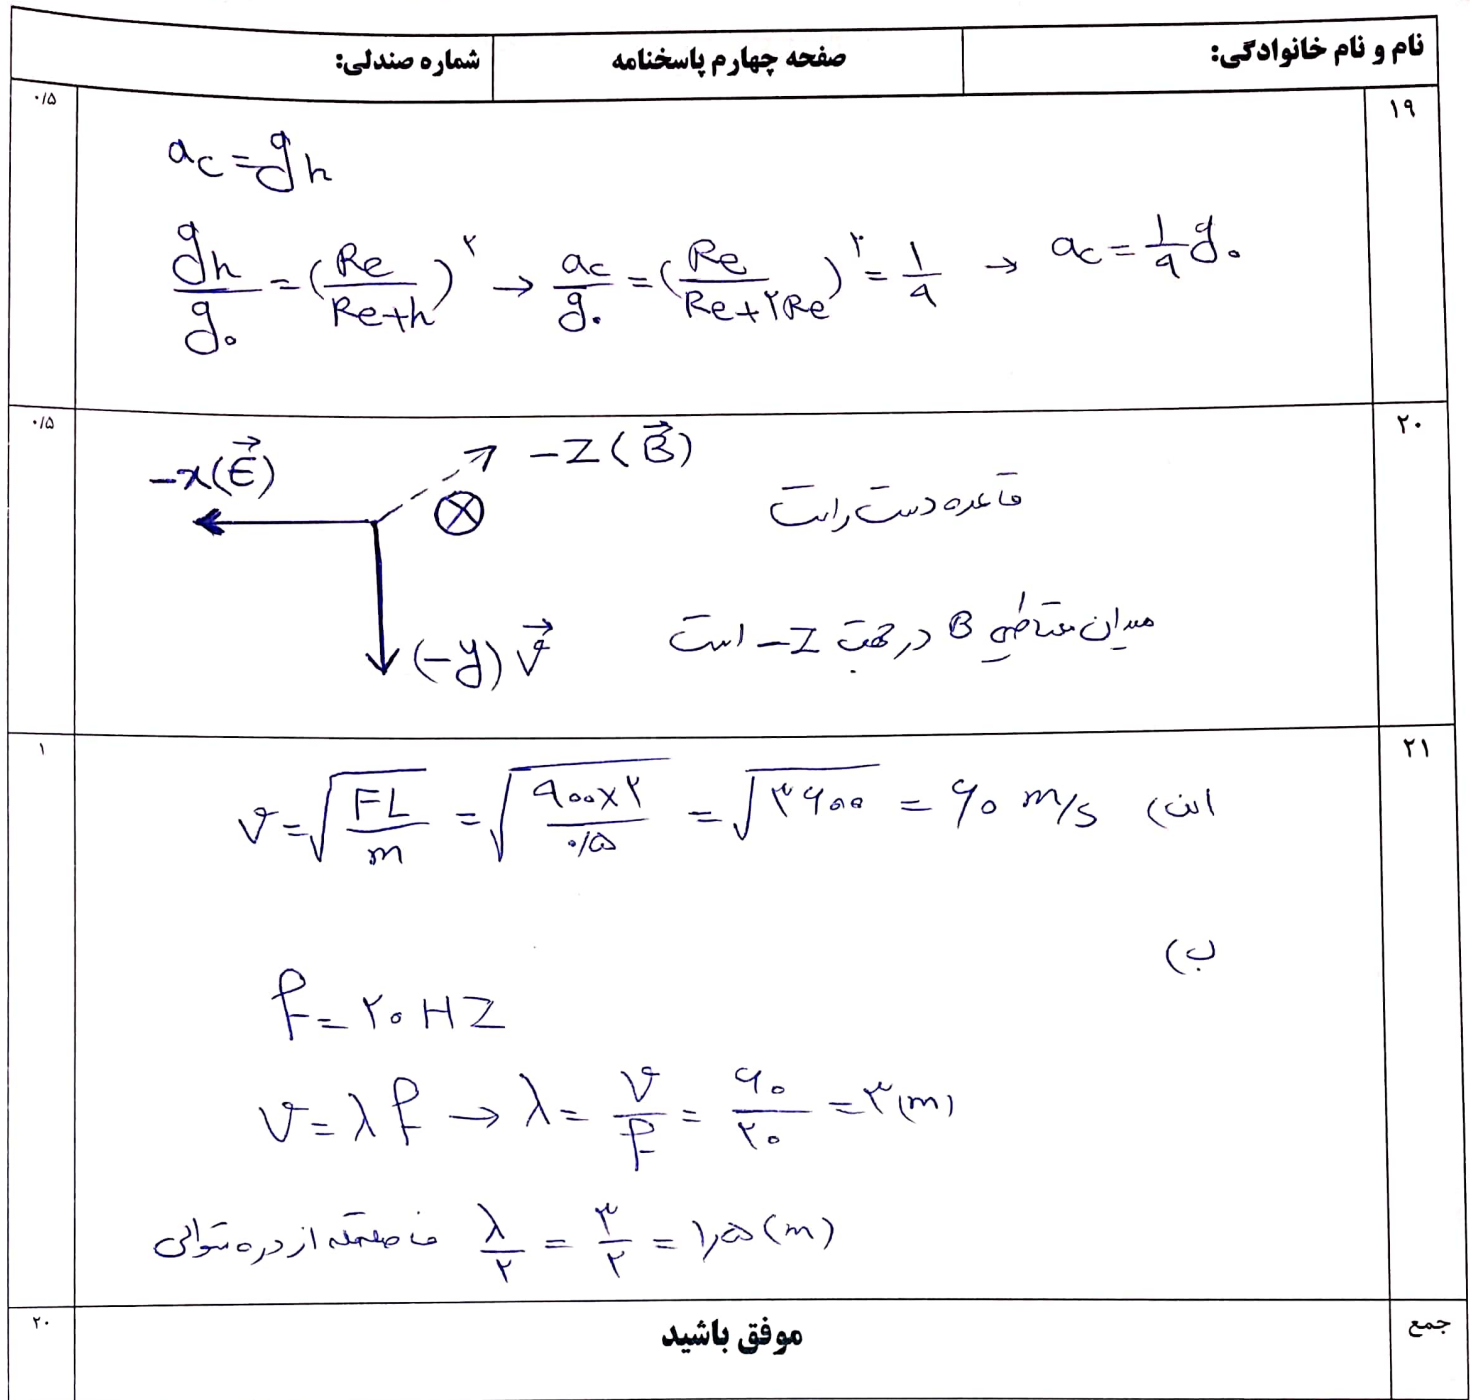 نام و نام خانوادگی: صفحه چهارم پاسخنامه شماره صندلی:
۱۹ ۰/۵
ac = gh
gh/g₀ = (Re/Re+h)^۲ → ac/g₀ = (Re/Re+۲Re)^۲ = ۱/۹ → ac = ۱/۹ g₀
۲۰ ۰/۵
−x(E⃗) −Z(B⃗)
قاعده دست راست
(−y) v⃗ میدان مغناطیسی B در جهت −Z است
۲۱ ۱
الف) v = √(FL/m) = √(۹۰۰×۲/۰/۵) = √۳۶۰۰ = ۶۰ m/s
ب)
f = ۲۰ HZ
v = λf → λ = v/f = ۶۰/۲۰ = ۳(m)
فاصله قله از دره متوالی λ/۲ = ۳/۲ = ۱,۵(m)
جمع موفق باشید ۲۰